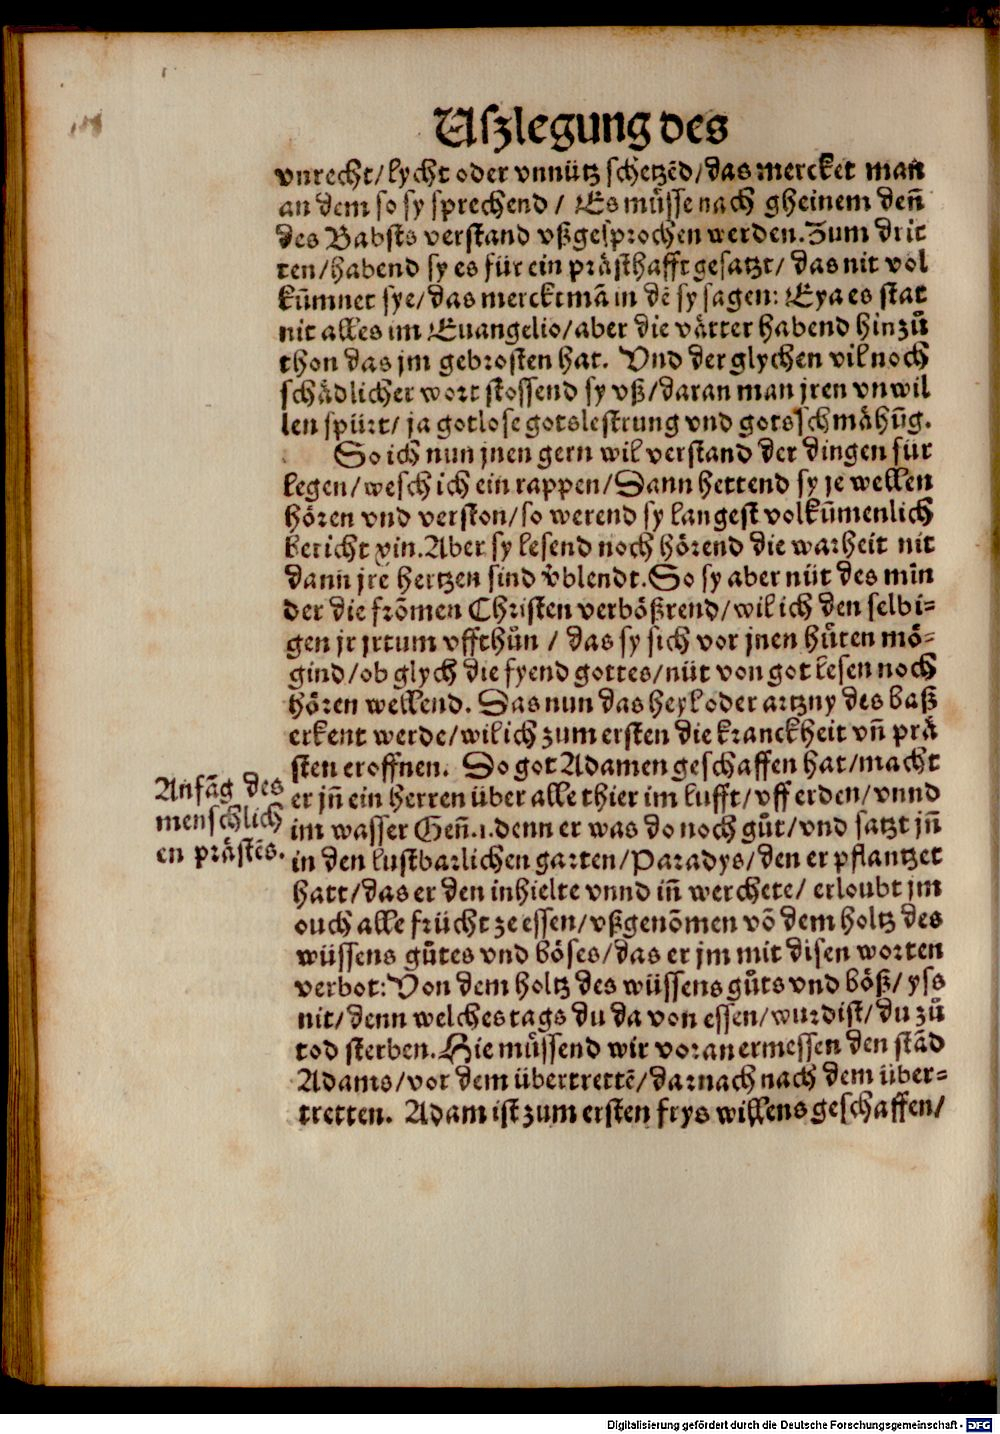 Uſzlegung des
vnrecht/lycht oder vnnütz ſchetzēd/das mercket man
an dem ſo ſy ſprechend / Es müſſe nach gheinem deñ
des Babſts verſtand vßgeſprochen werden. Zum drit
ten/habend ſy es für ein präſthafft geſatzt/ das nit vol
kūmnet ſye/das merckt mā in dē ſy ſagen: Eya es ſtat
nit alles im Euangelio/aber die vätter habend hinzů
thon das jm gebroſten hat. Vnd der glychen vil noch
ſchädlicher wort ſtoſſend ſy vß/daran man jren vnwil
len ſpürt/ ja gotloſe gotsleſtrung vnd gotsſchmähūg.
So ich nun jnen gern wil verſtand der dingen für
legen/weſch ich ein rappen/Dann hettend ſy je wellen
hören vnd verſton/ſo werend ſy langeſt volkūmenlich
bericht xin. Aber ſy leſend noch hörend die warheit nit
dann jrē hertzen ſind v̄blendt. So ſy aber nüt des min
der die frōmen Chriſten verbößrend/wil ich den ſelbi-
gen jr jrtum vffthůn / das ſy ſich vor jnen hůten mö-
gind/ob glych die fyend gottes/nüt von got leſen noch
hören wellend. Das nun das heyl oder artzny des baß
erkent werde/wil ich zum erſten die kranckheit vñ prä
ſten eroffnen. Do got Adamen geſchaffen hat/macht
Anfāg des
menſchlich
en präſtēs.
er jñ ein herren über alle thier im lufft/vff erden/vnnd
im waſſer Geñ.1.denn er was do noch gůt/vnd ſatzt jñ
in den luſtbarlichen garten/Paradys/den er pflantzet
hatt/das er den inhielte vnnd iñ werchete/ erloubt jm
ouch alle frücht ze eſſen/vßgenōmen vō dem holtz des
wüſſens gůtes vnd böſes/das er jm mit diſen worten
verbot: Von dem holtz des wüſſens gůts vnd böß/ yſs
nit/denn welches tags du da von eſſen/wurdiſt/du zů
tod ſterben. Hie můſſend wir voran ermeſſen den ſtād
Adams/vor dem übertrettē/darnach nach dem über-
tretten. Adam iſt zum erſten frys willens geſchaffen/
Digitalisierung gefördert durch die Deutsche Forschungsgemeinschaft - DFG